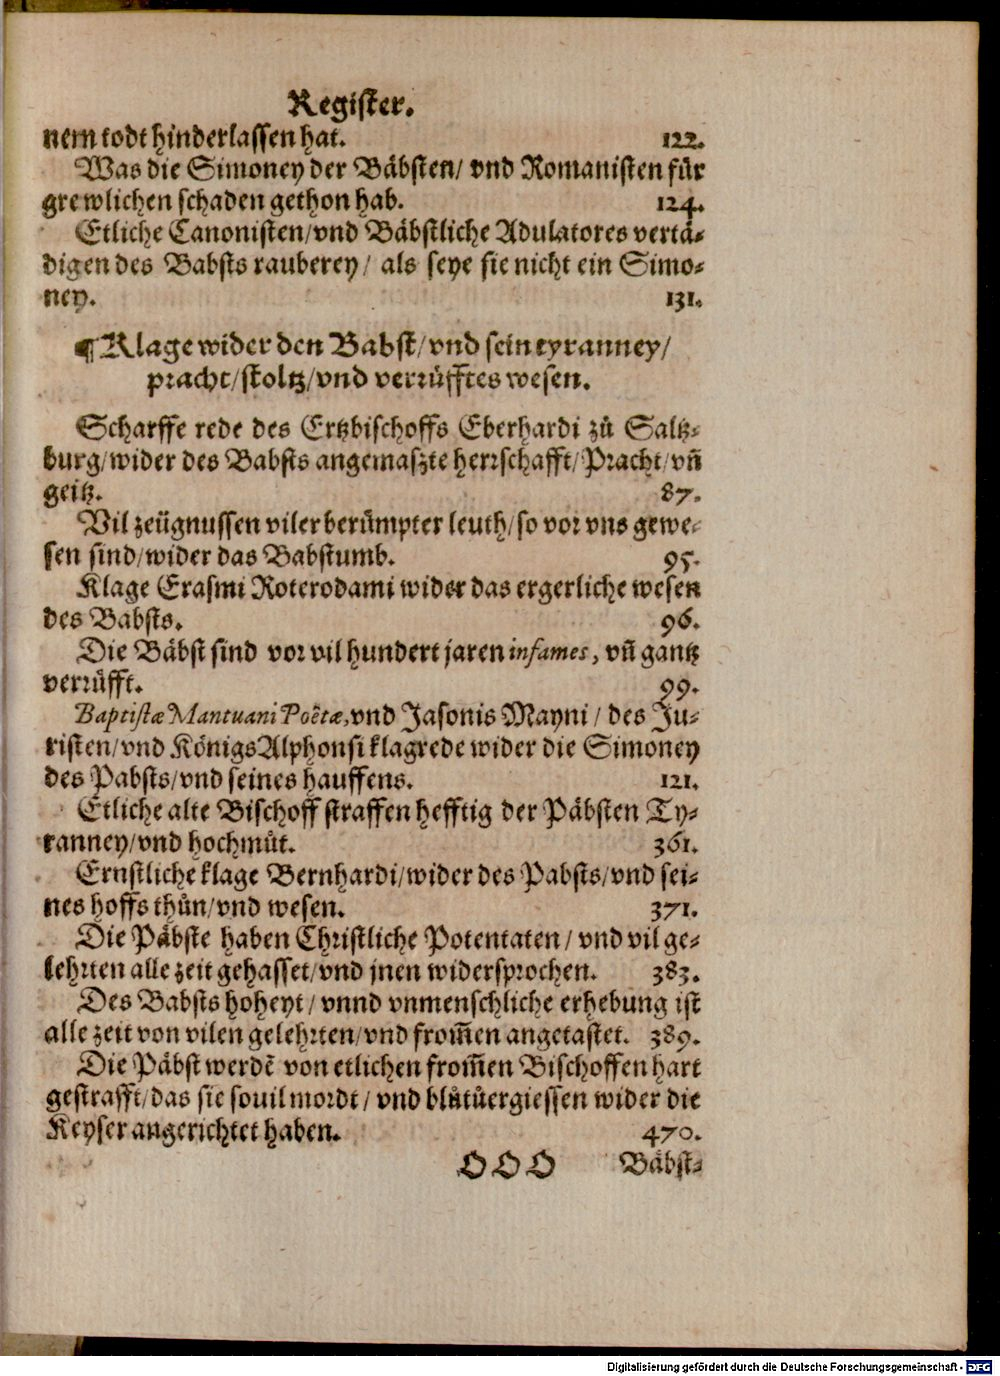 Register.
nem todt hinderlassen hat. 122.
Was die Simoney der Bäbsten/ vnd Romanisten für
grewlichen schaden gethon hab. 124.
Etliche Canonisten/vnd Bäbstliche Adulatores vertä-
digen des Babsts rauberey/ als seye sie nicht ein Simo-
ney. 131.
¶ Klage wider den Babst/vnd sein tyranney/
pracht/stoltz/vnd verrüfftes wesen.
Scharffe rede des Ertzbischoffs Eberhardi zů Saltz-
burg/wider des Babsts angemaszte herrschafft/Pracht/vñ
geitz. 87.
Vil zeügnussen viler berümpter leuth/so vor vns gewe-
sen sind/wider das Babstumb. 95.
Klage Erasmi Roterodami wider das ergerliche wesen
des Babsts. 96.
Die Bäbst sind vor vil hundert jaren infames, vñ gantz
verrüfft. 99.
Baptistæ Mantuani Poëtæ, vnd Jasonis Mayni/ des Ju-
risten/vnd Königs Alphonsi klagrede wider die Simoney
des Pabsts/vnd seines hauffens. 121.
Etliche alte Bischoff straffen hefftig der Päbsten Ty-
ranney/vnd hochmůt. 361.
Ernstliche klage Bernhardi/wider des Pabsts/vnd sei-
nes hoffs thůn/vnd wesen. 371.
Die Päbste haben Christliche Potentaten/ vnd vil ge-
lehrten alle zeit gehasset/vnd jnen widersprochen. 383.
Des Babsts hoheyt/ vnnd vnmenschliche erhebung ist
alle zeit von vilen gelehrten/vnd from̃en angetastet. 389.
Die Päbst werdẽ von etlichen from̃en Bischoffen hart
gestrafft/das sie souil mordt/ vnd blůtuergiessen wider die
Keyser angerichtet haben. 470.
OOO Bäbst-
Digitalisierung gefördert durch die Deutsche Forschungsgemeinschaft - DFG